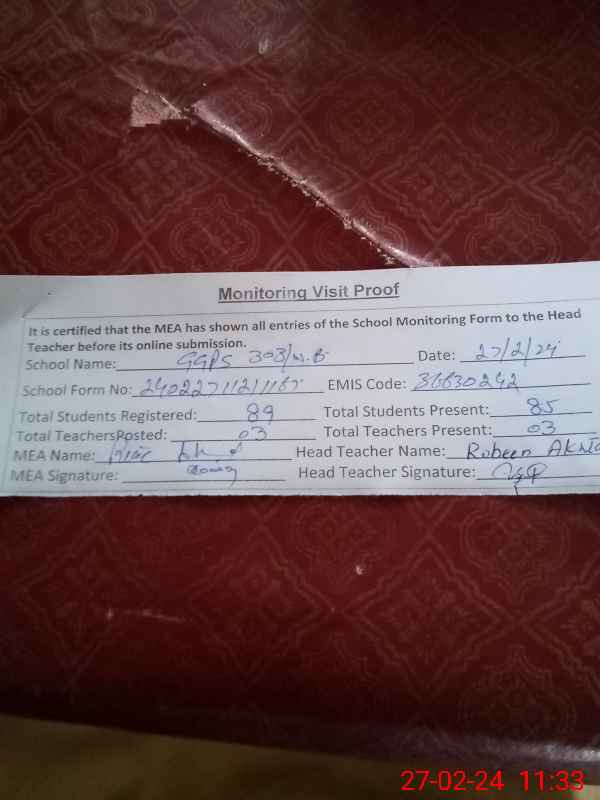 Monitoring Visit Proof
It is certified that the MEA has shown all entries of the School Monitoring Form to the Head
Teacher before its online submission.
School Name: GGPS 303/W.B Date: 27/2/24
School Form No: EMIS Code: 36630242
Total Students Registered: 89 Total Students Present: 85
Total TeachersPosted: 03 Total Teachers Present: 03
MEA Name: Head Teacher Name: Robeen
MEA Signature: Head Teacher Signature:
27-02-24 11:33